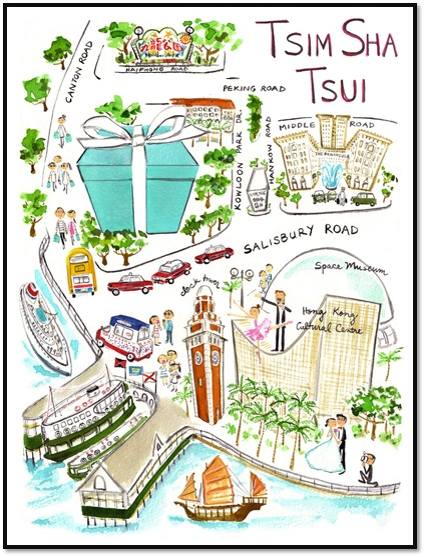 TSIM SHA
TSUI
CANTON ROAD
九龍公園
HAIPHONG ROAD
PEKING ROAD
KOWLOON PARK DR.
HANKOW ROAD
MIDDLE ROAD
THE PENINSULA
SALISBURY ROAD
Space Museum
clock tower
Hong Kong
Cultural Centre